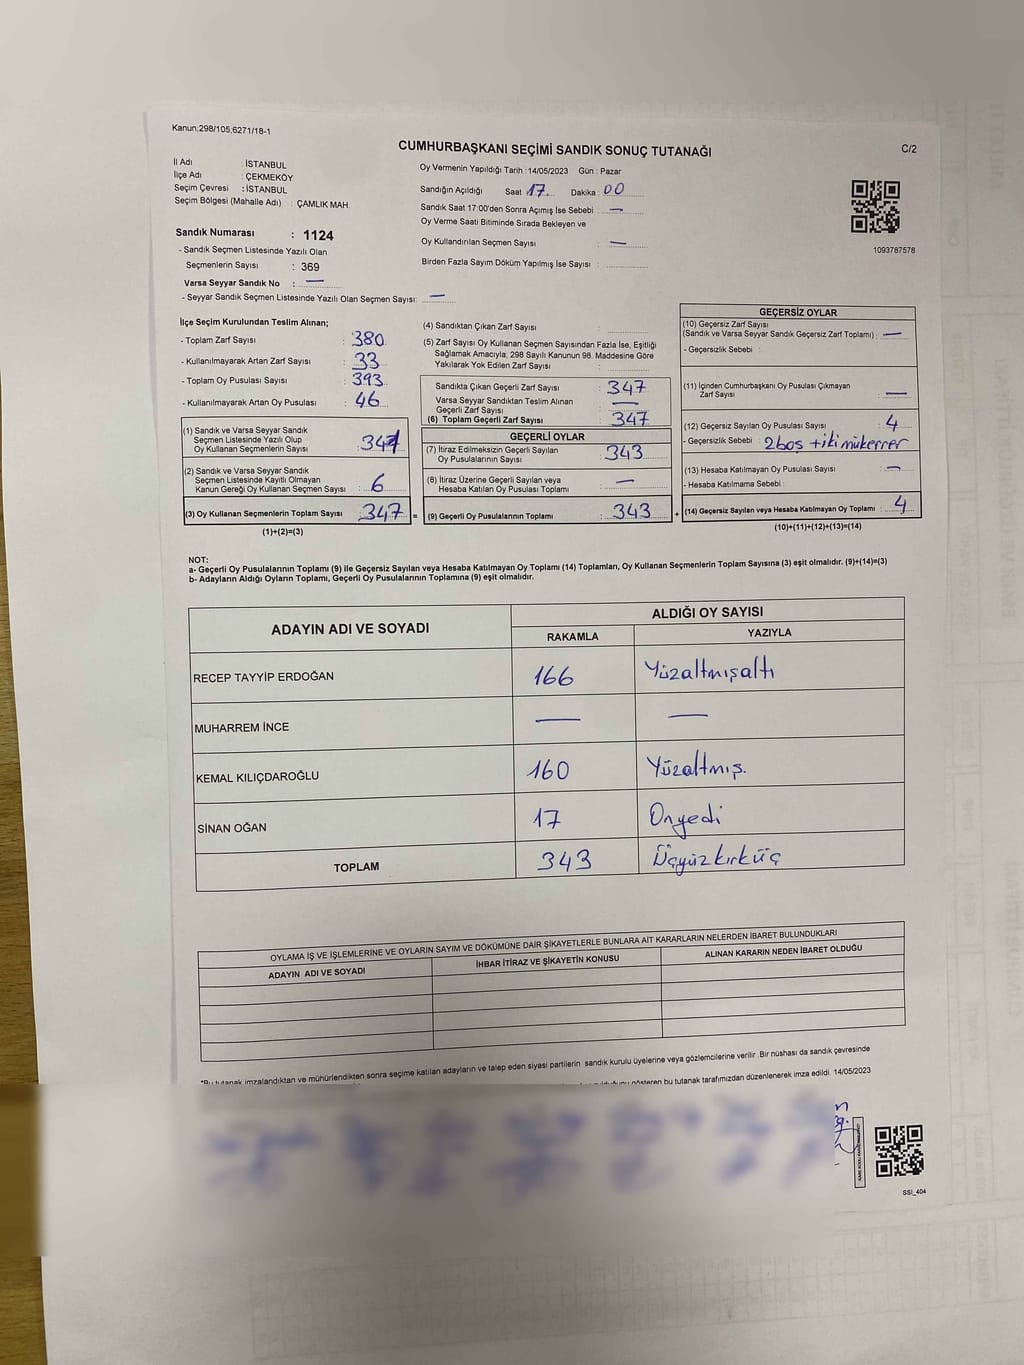 Kanun;298/105,6271/18-1
CUMHURBAŞKANI SEÇİMİ SANDIK SONUÇ TUTANAĞI
C/2
İl Adı : İSTANBUL
İlçe Adı : ÇEKMEKÖY
Seçim Çevresi : İSTANBUL
Seçim Bölgesi (Mahalle Adı) : ÇAMLIK MAH.
Oy Vermenin Yapıldığı Tarih :14/05/2023 Gün : Pazar
Sandığın Açıldığı Saat 17 Dakika : 00
Sandık Saat 17:00'den Sonra Açımış İse Sebebi : —
Oy Verme Saati Bitiminde Sırada Bekleyen ve
Oy Kullandırılan Seçmen Sayısı : —
Birden Fazla Sayım Döküm Yapılmış İse Sayısı :
1093787578
Sandık Numarası : 1124
- Sandık Seçmen Listesinde Yazılı Olan
Seçmenlerin Sayısı : 369
Varsa Seyyar Sandık No : —
- Seyyar Sandık Seçmen Listesinde Yazılı Olan Seçmen Sayısı: —
İlçe Seçim Kurulundan Teslim Alınan;
- Toplam Zarf Sayısı : 380
- Kullanılmayarak Artan Zarf Sayısı : 33
- Toplam Oy Pusulası Sayısı : 393
- Kullanılmayarak Artan Oy Pusulası : 46
(1) Sandık ve Varsa Seyyar Sandık
Seçmen Listesinde Yazılı Olup
Oy Kullanan Seçmenlerin Sayısı :
(2) Sandık ve Varsa Seyyar Sandık
Seçmen Listesinde Kayıtlı Olmayan
Kanun Gereği Oy Kullanan Seçmen Sayısı : 6
(3) Oy Kullanan Seçmenlerin Toplam Sayısı : 347 =
(1)+(2)=(3)
(4) Sandıktan Çıkan Zarf Sayısı :
(5) Zarf Sayısı Oy Kullanan Seçmen Sayısından Fazla İse, Eşitliği
Sağlamak Amacıyla, 298 Sayılı Kanunun 98. Maddesine Göre
Yakılarak Yok Edilen Zarf Sayısı :
Sandıkta Çıkan Geçerli Zarf Sayısı : 347
Varsa Seyyar Sandıktan Teslim Alınan
Geçerli Zarf Sayısı : —
(6) Toplam Geçerli Zarf Sayısı : 347
GEÇERLİ OYLAR
(7) İtiraz Edilmeksizin Geçerli Sayılan
Oy Pusulalarının Sayısı : 343
(8) İtiraz Üzerine Geçerli Sayılan veya
Hesaba Katılan Oy Pusulası Toplamı : —
(9) Geçerli Oy Pusulalarının Toplamı : 343 +
GEÇERSİZ OYLAR
(10) Geçersiz Zarf Sayısı
(Sandık ve Varsa Seyyar Sandık Geçersiz Zarf Toplamı) : —
- Geçersizlik Sebebi :
(11) İçinden Cumhurbaşkanı Oy Pusulası Çıkmayan
Zarf Sayısı : —
(12) Geçersiz Sayılan Oy Pusulası Sayısı : 4
- Geçersizlik Sebebi : 2boş + iki mükerrer
(13) Hesaba Katılmayan Oy Pusulası Sayısı : —
- Hesaba Katılmama Sebebi :
(14) Geçersiz Sayılan veya Hesaba Katılmayan Oy Toplamı : 4
(10)+(11)+(12)+(13)=(14)
NOT:
a- Geçerli Oy Pusulalarının Toplamı (9) ile Geçersiz Sayılan veya Hesaba Katılmayan Oy Toplamı (14) Toplamları, Oy Kullanan Seçmenlerin Toplam Sayısına (3) eşit olmalıdır. (9)+(14)=(3)
b- Adayların Aldığı Oyların Toplamı, Geçerli Oy Pusulalarının Toplamına (9) eşit olmalıdır.
ADAYIN ADI VE SOYADI ALDIĞI OY SAYISI
RAKAMLA YAZIYLA
RECEP TAYYİP ERDOĞAN 166 Yüzaltmışaltı
MUHARREM İNCE — —
KEMAL KILIÇDAROĞLU 160 Yüzaltmış.
SİNAN OĞAN 17 Onyedi
TOPLAM 343 Üçyüzkırküç
OYLAMA İŞ VE İŞLEMLERİNE VE OYLARIN SAYIM VE DÖKÜMÜNE DAİR ŞİKAYETLERLE BUNLARA AİT KARARLARIN NELERDEN İBARET BULUNDUKLARI
ADAYIN ADI VE SOYADI İHBAR İTİRAZ VE ŞİKAYETİN KONUSU ALINAN KARARIN NEDEN İBARET OLDUĞU
*Bu tutanak imzalandıktan ve mühürlendikten sonra seçime katılan adayların ve talep eden siyasi partilerin sandık kurulu üyelerine veya gözlemcilerine verilir .Bir nüshası da sandık çevresinde
gösteren bu tutanak tarafımızdan düzenlenerek imza edildi. 14/05/2023
SSI_404